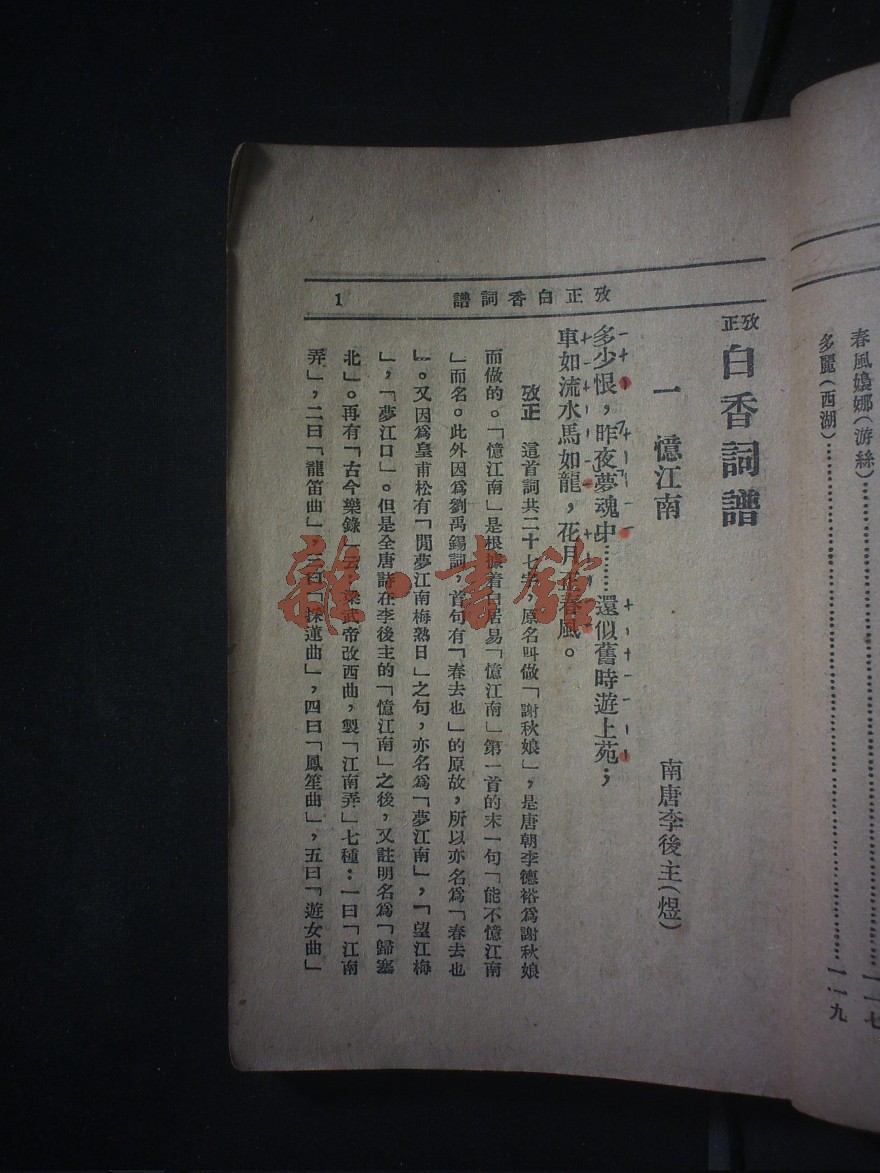 春風嬝娜(游絲)……一一七
多麗(西湖)……一一九
攷正白香詞譜
1
攷正 白香詞譜
一　憶江南
南唐李後主(煜)
多少恨，昨夜夢魂中……還似舊時遊上苑；
車如流水馬如龍，花月正春風。
攷正　這首詞共二十七字，原名叫做「謝秋娘」，是唐朝李德裕爲謝秋娘
而做的。「憶江南」是根據着白居易「憶江南」第一首的末一句「能不憶江南
」而名。此外因爲劉禹錫詞，首句有「春去也」的原故，所以亦名爲「春去也
」。又因爲皇甫松有「閒夢江南梅熟日」之句，亦名爲「夢江南」，「望江梅
」，「夢江口」。但是全唐詩在李後主的「憶江南」之後，又註明名爲「歸塞
北」。再有「古今樂錄」云，梁武帝改西曲，製「江南弄」七種：一曰「江南
弄」，二曰「龍笛曲」，三曰「採蓮曲」，四曰「鳳笙曲」，五曰「遊女曲」
雜·書館